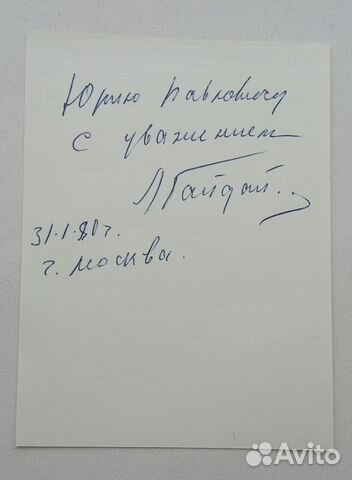 Юрию Павловичу
с уважением
Л Гайдай.
31.1.80г.
г. Москва.
Avito